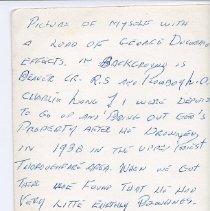 PICTURE OF MYSELF WITH
A LOAD OF GEORGE
EFFECTS. IN BACKGROUND IS
BEAVER CR. R.S AND
CHARLIE LONG & I WERE
TO GO UP AND BRING OUT GEO'S
PROPERTY AFTER HE DROWNED,
IN 1938 IN THE UPPER PRIEST
THOROUGHFARE AREA. WHEN WE GOT
THERE WE FOUND THAT HE HAD
VERY LITTE EARTHLY